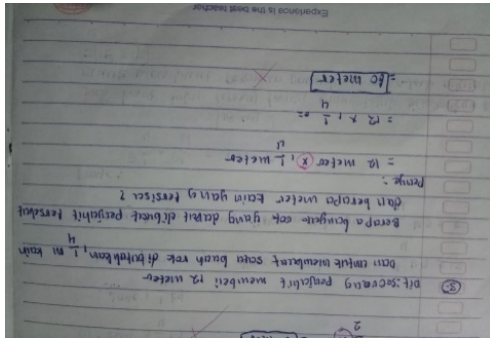 2
③ Dit: seorang penjahit membeli 12 meter
Dan untuk membuat satu buah rok dibutuhkan 1 1/4 m kain
Berapa banyak rok yang dapat dibuat penjahit tersebut
dan berapa meter kain yang tersisa ?
Penye :
= 12 meter × 1 1/4 meter
= 12 × 1 1/4 =
= 60 meter
Experience is the best teacher